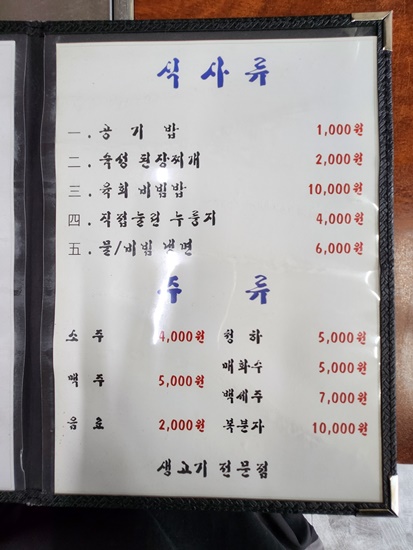 식사류
一. 공기밥 1,000원
二. 숙성 된장찌개 2,000원
三. 육회 비빔밥 10,000원
四. 직접눌린 누룽지 4,000원
五. 물/비빔 냉면 6,000원
주류
소주 4,000원 청하 5,000원
매화수 5,000원
맥주 5,000원
백세주 7,000원
음료 2,000원 복분자 10,000원
생고기 전문점